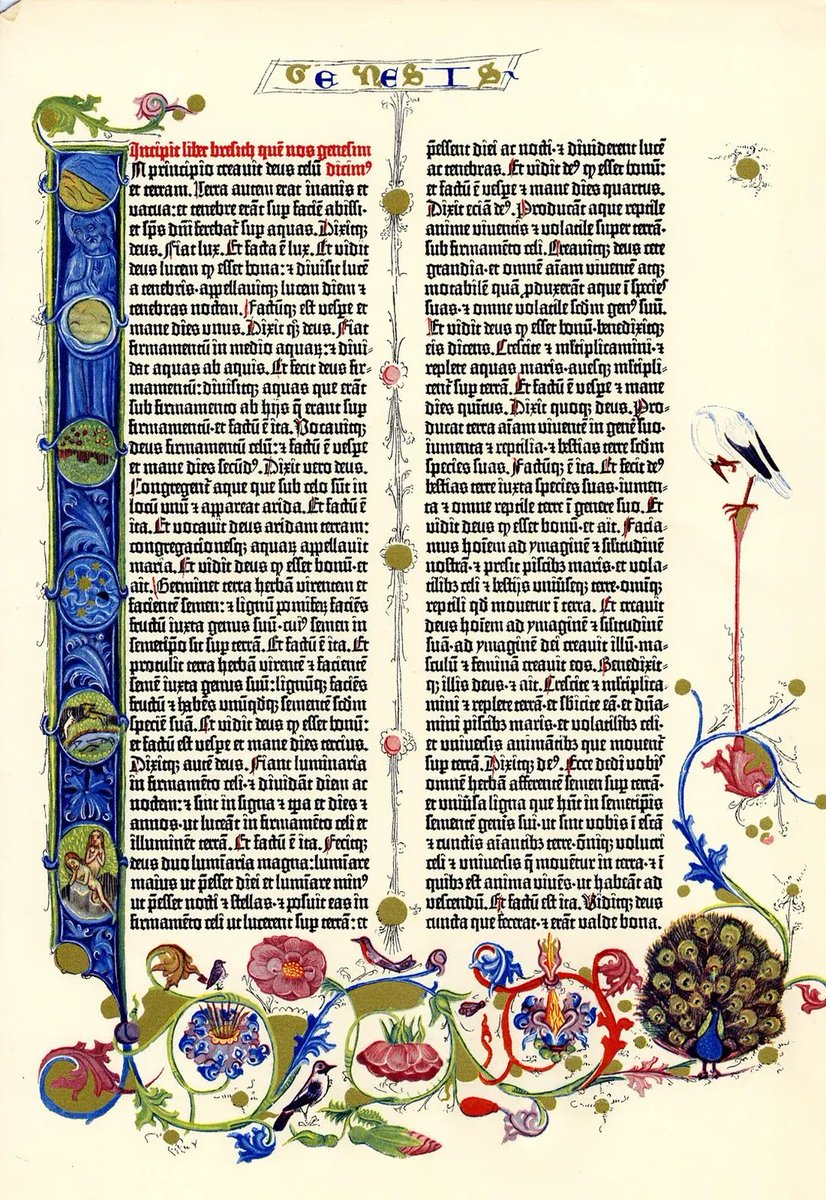 GENESIS
Incipit liber bresich quē nos genesim
N principio creavit deus celū dicimꝰ
et terram. Terra autem erat inanis et
vacua: et tenebre erāt sup faciē abissi·
et sp̄s dn̄i ferebat᷑ sup aquas. Dixitqꝫ
deus. Fiat lux. Et facta ē lux. Et vidit
deus lucem ꝙ esset bona: ⁊ divisit lucē
a tenebris·appellavitqꝫ lucem diem ⁊
tenebras noctem. Factūqꝫ est vespe et
mane dies vnus. Dixit qꝫ deus. Fiat
firmamentū in medio aquaꝝ: ⁊ divi-
dat aquas ab aquis. Et fecit deus fir-
mamentū: divisitqꝫ aquas que erāt
sub firmamento ab hijs q̄ erant sup
firmamentū·et factū ē ita. Vocavitqꝫ
deus firmamentū celū: ⁊ factū ē vespe
et mane dies secūdꝰ. Dixit vero deus.
Congregent᷑ aque que sub celo sūt in
locū vnū ⁊ appareat arida. Et factū ē
ita. Et vocavit deus aridam terram:
congregacionesqꝫ aquaꝝ appellavit
maria. Et vidit deus ꝙ esset bonū·et
ait. Germinet terra herbā virentem et
facientē semen: ⁊ lignū pomiferꝫ faciēs
fructū iuxta genus suū·cuiꝰ semen in
semetipo sit sup terrā. Et factū ē ita. Et
protulit terra herbā virentē ⁊ facientē
semē iuxta genus suū: lignūqꝫ faciēs
fructū ⁊ habēs vnūqdqꝫ sementē scdm
speciē suā. Et vidit deus ꝙ esset bonū:
et factū est vespe et mane dies tercius.
Dixitqꝫ autē deus. Fiant luminaria
in firmamēto celi·⁊ dividāt diem ac
noctem: ⁊ sint in signa ⁊ tpa et dies ⁊
annos·ut luceāt in firmamēto celi et
illuminēt terrā. Et factū ē ita. Fecitqꝫ
deus duo lumīaria magna: lumīare
maius ut p̄esset diei et lumīare minꝰ
ut p̄esset nocti ⁊ stellas·⁊ posuit eas in
firmamēto celi ut lucerent sup terrā: et
p̄essent diei ac nocti·⁊ dividerent lucē
ac tenebras. Et vidit deꝰ ꝙ esset bonū:
et factū ē vespe ⁊ mane dies quartus.
Dixit eciā deꝰ. Producāt aque reptile
anime viventis ⁊ volatile super terrā·
sub firmamēto celi. Creavitqꝫ deus cete
grandia·et omnē aīam viventē atqꝫ
motabilē quā pduxerāt aque ī species
suas·⁊ omne volatile scdm genꝰ suū.
Et vidit deus ꝙ esset bonū·benedixitqꝫ
eis dicens. Crescite ⁊ mltiplicamini·⁊
replete aquas maris·avesqꝫ mltipli-
cent᷑ sup terrā. Et factū ē vespe ⁊ mane
dies quītus. Dixit quoqꝫ deus. Pro-
ducat terra aīam viventē in genē suo·
iumenta ⁊ reptilia·⁊ bestias terre scdm
species suas. Factūqꝫ ē ita. Et fecit deꝰ
bestias terre iuxta species suas·iumen-
ta ⁊ omne reptile terre ī genere suo. Et
vidit deus ꝙ esset bonū·et ait. Facia-
mus hoīem ad ymaginē ⁊ siľitudinē
nostrā·⁊ presit piscibꝫ maris·et vola-
tilibꝫ celi ⁊ bestijs vniūseqꝫ terre·omīqꝫ
reptili qd movetur ī terra. Et creavit
deus hoīem ad ymaginē ⁊ siľitudinē
suā·ad ymaginē dei creavit illū·ma-
sculū ⁊ feminā creavit eos. Benedixit-
qꝫ illis deus·⁊ ait. Crescite ⁊ mltiplica-
mini ⁊ replete terrā·et sbicite eā·et dn̄a-
mini piscibꝫ maris·et volatilibꝫ celi·
et vniversis animātibꝫ que movent᷑
sup terrā. Dixitqꝫ deꝰ. Ecce dedi vobis
omnē herbā afferentē semen sup terrā·
et vniūsa ligna que hn̄t in semetipis
sementē genīs sui·ut sint vobis ī escā
⁊ cunctis aīantibꝫ terre·ōniqꝫ volucri
celi ⁊ vniversis q̄ movētur in terra·⁊ ī
quibꝫ est anima vivēs·ut habeāt ad
vescendū. Et factū est ita. Viditqꝫ deus
cuncta que fecerat·⁊ erāt valde bona.